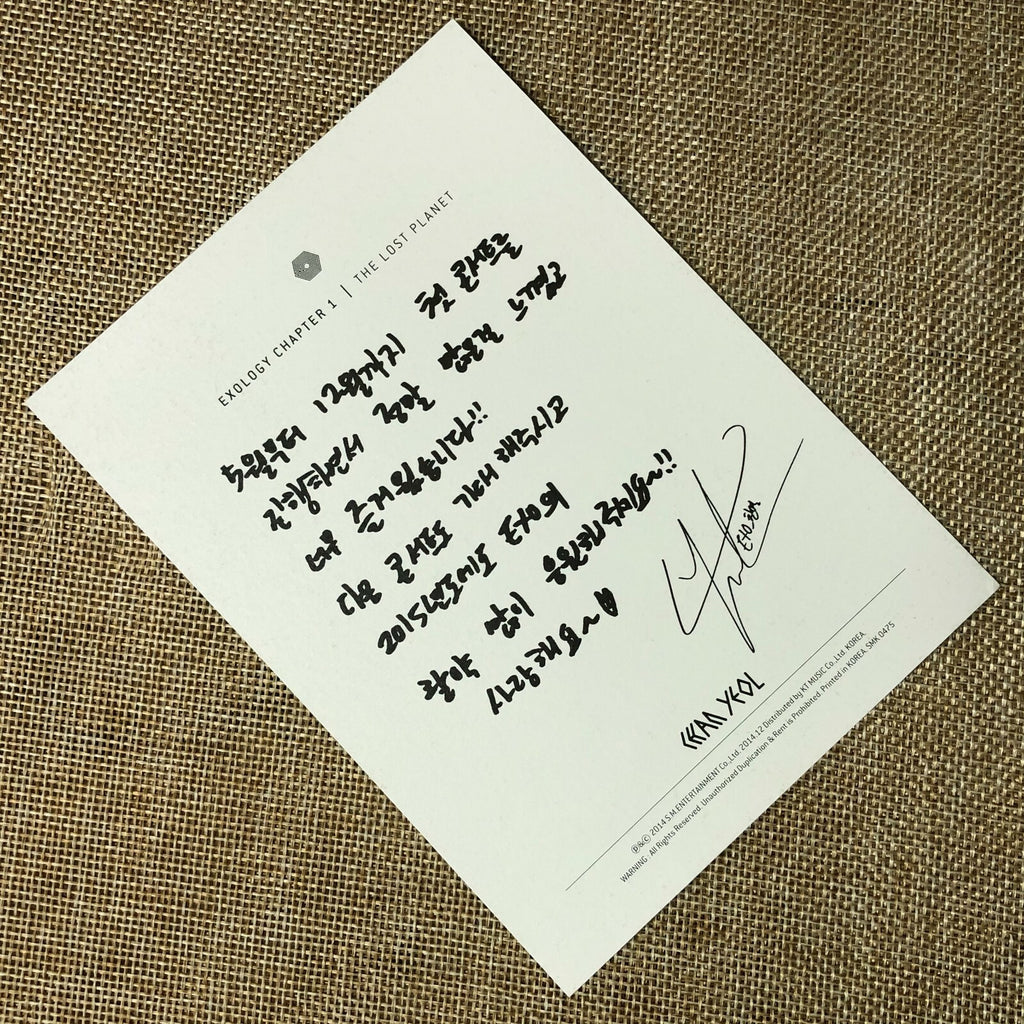 EXOLOGY CHAPTER 1 | THE LOST PLANET
5월부터 12월까지 첫 콘서트를
진행하면서 정말 많은걸 느꼈고
너무 즐거웠습니다!!
다음 콘서트도 기대해주시고
2015년도에도 EXO에
많이 응원해주세요~!!
사랑해요~♡
CHAN YEOL
Ⓟ&Ⓒ 2014 S.M.ENTERTAINMENT Co.,Ltd. 2014.12 Distributed by KT MUSIC Co.,Ltd. KOREA.
WARNING : All Rights Reserved. Unauthorized Duplication & Rent is Prohibited. Printed in KOREA. SMK 0475